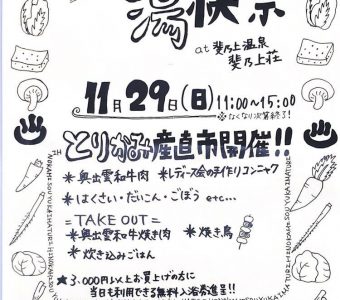 湯快祭
at 斐乃上温泉
斐乃上荘
11月29日(日)11:00～15:00
※なくなり次第終了!
とりかみ産直市開催!!
*奥出雲和牛肉 *レディース会の手作りコンニャク
*はくさい・だいこん・ごぼう etc...
=TAKE OUT=
*奥出雲和牛焼き肉 *焼き鳥
*炊き込みごはん
★3,000円以上お買上げの方に
当日も利用できる無料入浴券進呈!!
HINOKAMISOUYUKAIMATURI